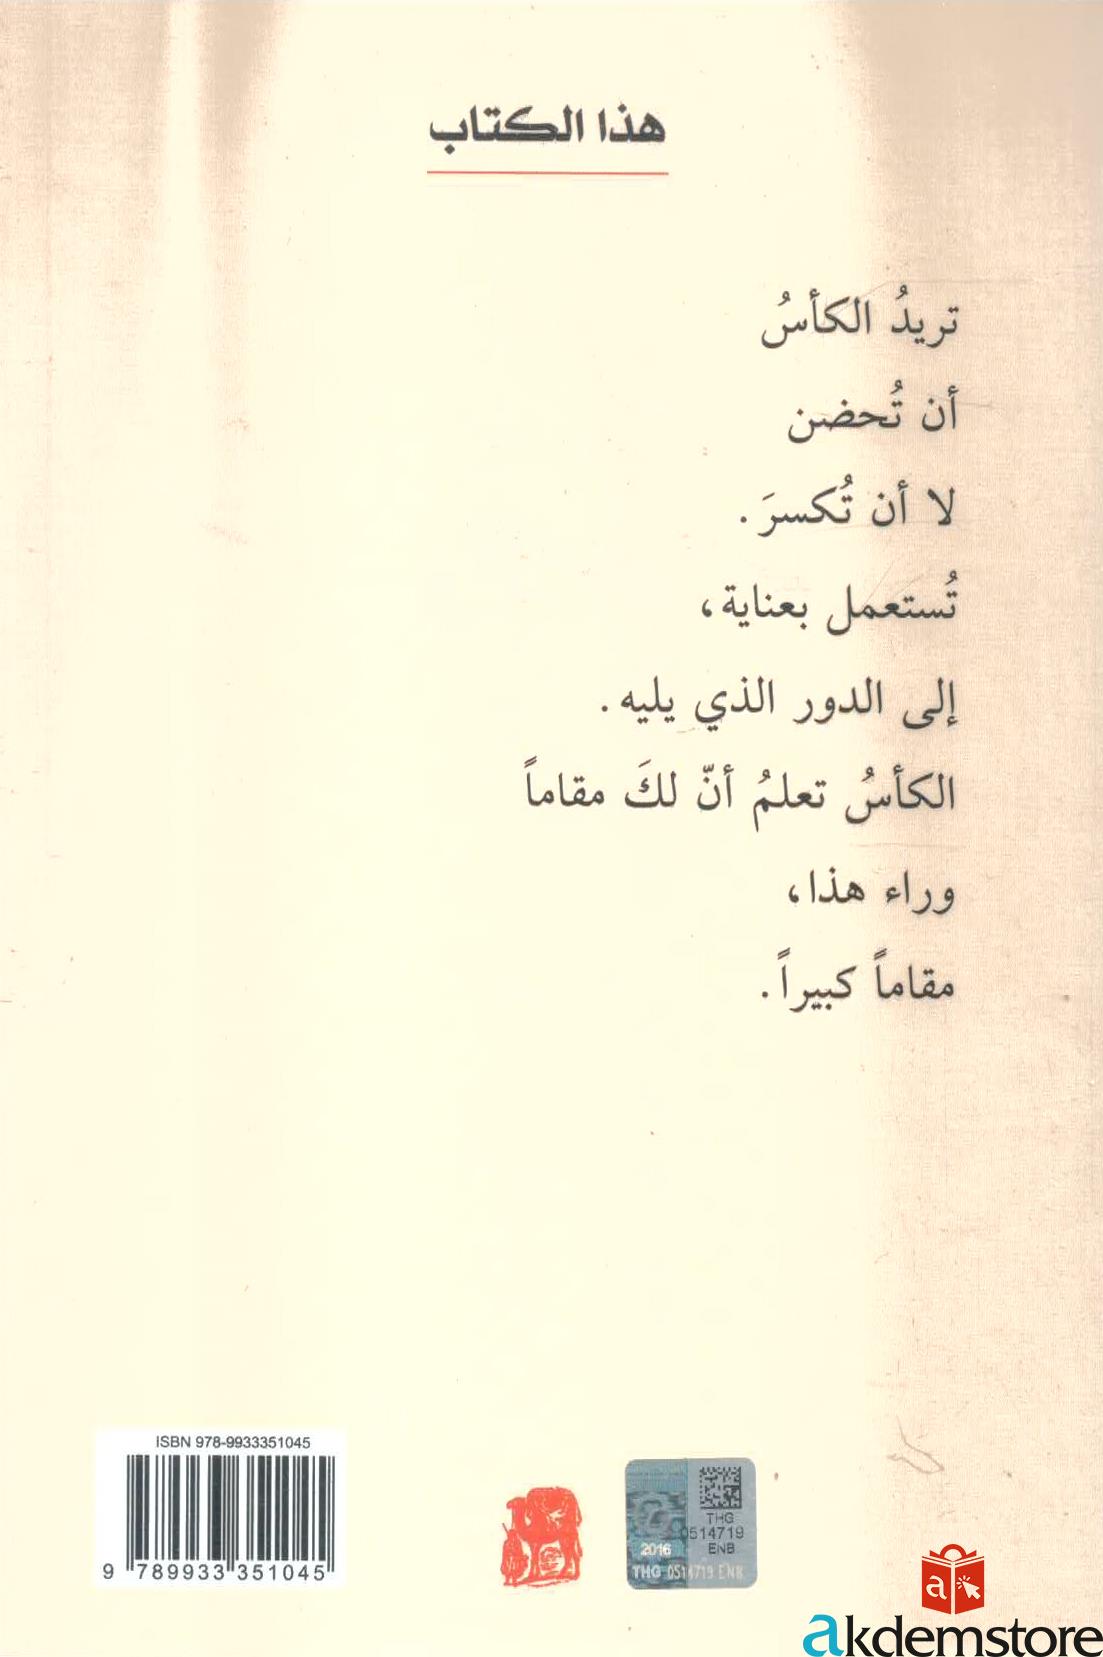 هذا الكتاب
تريدُ الكأسُ
أن تُحضن
لا أن تُكسرَ.
تُستعمل بعناية،
إلى الدور الذي يليه.
الكأسُ تعلمُ أنّ لكَ مقاماً
وراء هذا،
مقاماً كبيراً.
ISBN 978-9933351045
9 789933 351045
THG
0514719
ENB
2016
THG 0514719 ENB
a
akdemstore